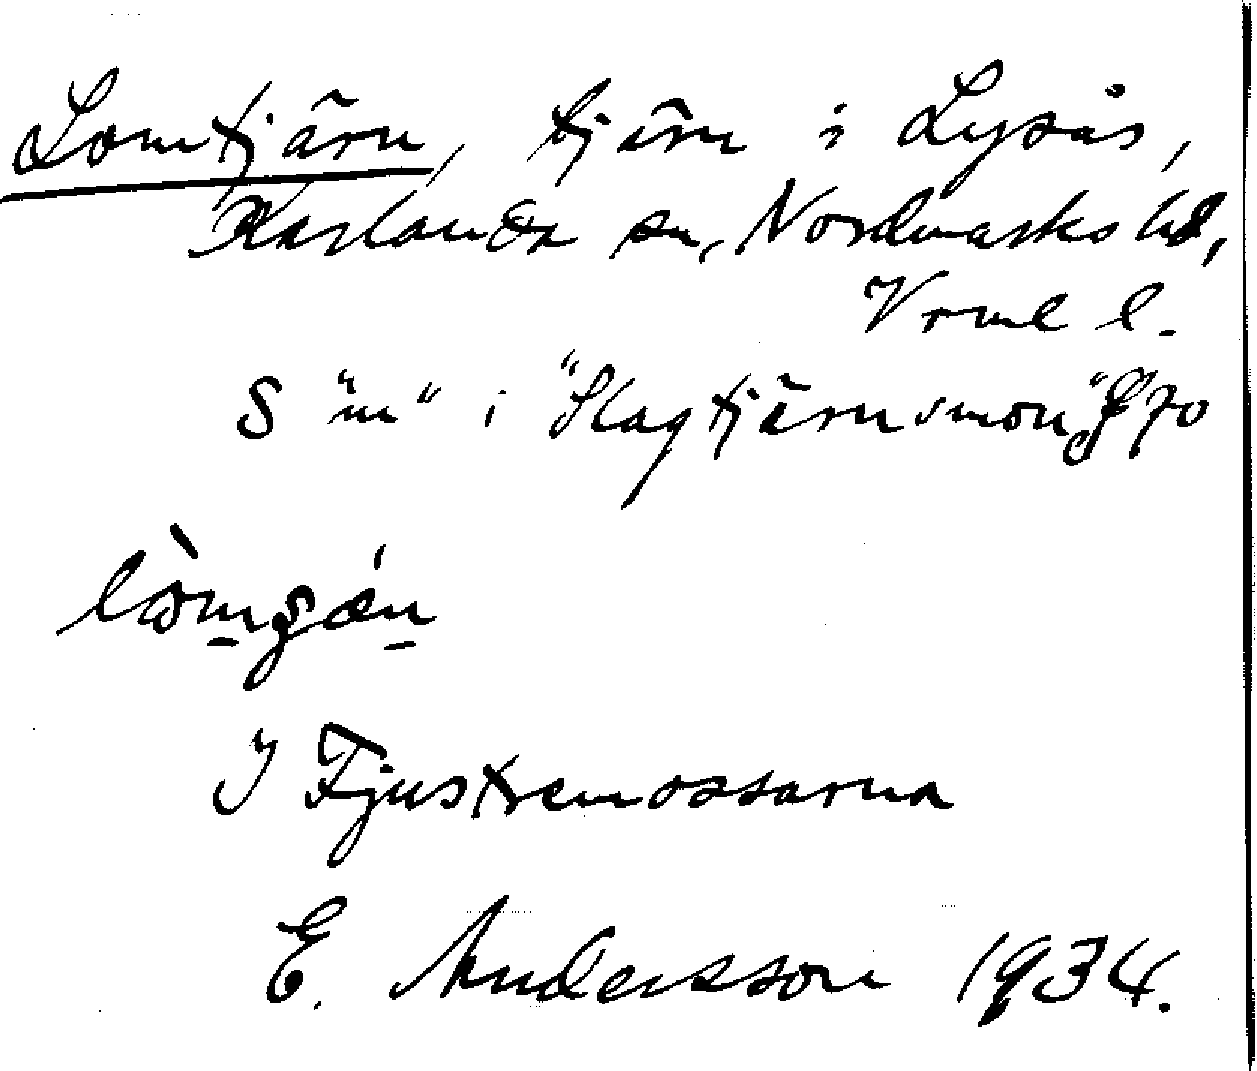 Lomtjärn, tjärn i Lysås,
Karlanda sn, Nordmarks hd,
Vrml l.
S "m" i "Slagtjärnsmon" J 70
lòmʂæn
I Fjustremossarna
E. Andersson 1934.